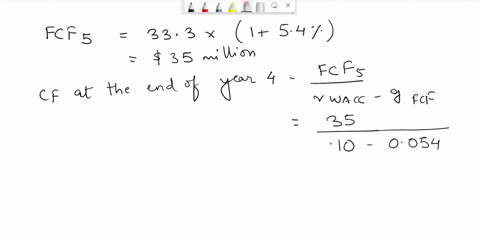 FCF5 = 33.3 x (1+ 5.4%)
= $ 35 million
CF at the end of year 4 - FCF5
r WACC - g FCF
= 35
.10 - 0.054